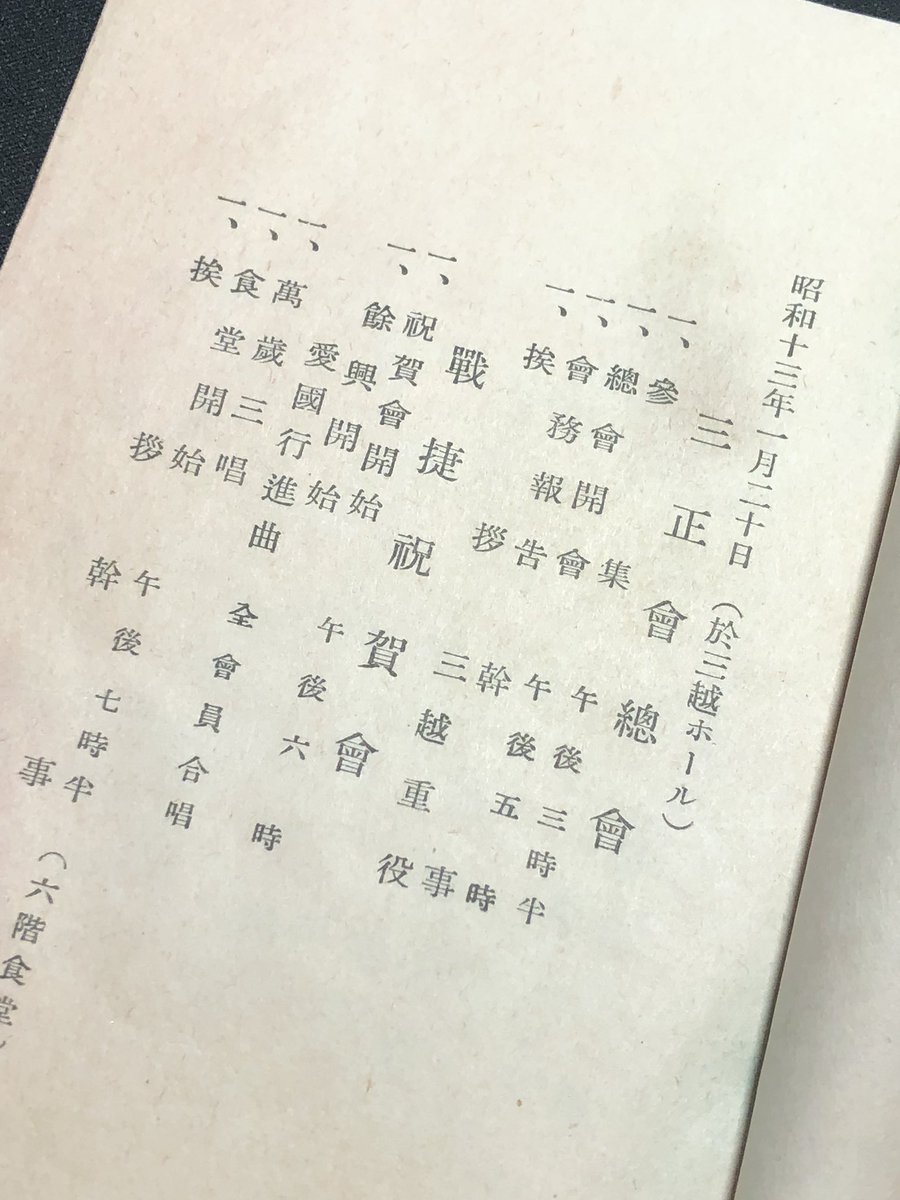 昭和十三年一月二十日（於三越ホール）
三正會總會
一、參集 午後三時半
一、總會開會 午後五時
一、會務報告 幹事
一、挨拶 三越重役
戰捷祝賀會
一、祝賀會開始 午後六時
一、餘興開始
愛國行進曲 全會員合唱
一、萬歲三唱
一、食堂開始 午後七時半（六階食堂）
一、挨拶 幹事